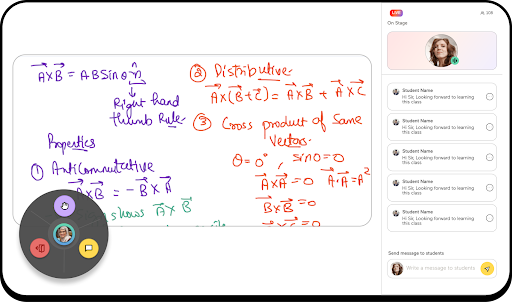 A⃗×B⃗ = AB Sinθ n̂
Right hand
thumb Rule.
Properties
① Anticommutative
A⃗×B⃗ = -B⃗×A⃗
shows A⃗×B⃗
② Distributive
A⃗×(B⃗+C⃗) = A⃗×B⃗ + A⃗×C⃗
③ Cross product of Same
Vectors
θ=0°, sin0=0
A⃗×A⃗=0 A⃗·A⃗=A²
B⃗×B⃗=0
LIVE
108
On Stage
Student Name
Hi Sir, Looking forward to learning
this class
Student Name
Hi Sir, Looking forward to learning
this class
Student Name
Hi Sir, Looking forward to learning
this class
Student Name
Hi Sir, Looking forward to learning
this class
Student Name
Hi Sir, Looking forward to learning
this class
Send message to students
Write a message to students